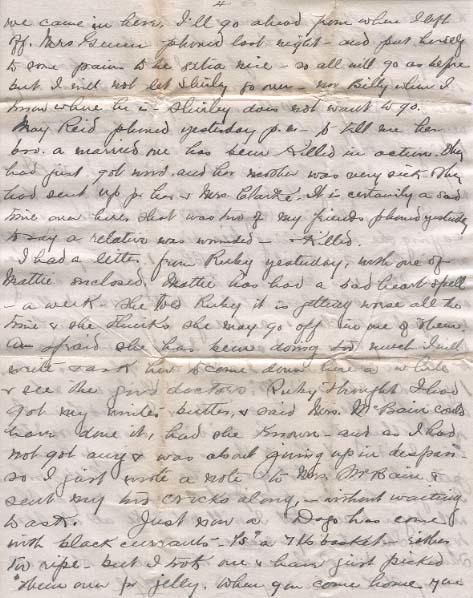 4
we came in here. I'll go ahead from where I left
off. Mrs phoned last night - and put herself
to some pains to be nice - so all will go as before
but I will not let Shirley go over - nor Billy when I
know where he is - Shirley does not want to go.
May Reid phoned yesterday p.m. to tell me her
bro. a married one has been killed in action. They
had just got word and her mother was very sick & they
had sent up for her & Mrs. Clarke. It is certainly a sad
time over here, that was two of my friends phoned yesterday
to say a relative was wounded - & killed.
I had a letter from Ruby yesterday, with one of
Mattie enclosed. Mattie has had a bad heart spell
- a week - she told Ruby it is getting worse all the
time & she thinks she may go off in one of them
afraid she has been doing too much I will
write & ask her to come down here a while
& see the good doctors. Ruby thought I had
got my winter butter, & said Mrs. McBain could
have done it, had she known - and as I had
not got any & was about giving up in despair
so I just wrote a note to Mrs. McBain &
sent my two crocks along, - without waiting
to ask. Just now a Dago has come
with black currants - a basket - rather
too ripe - but I took one & have just picked
them over for jelly. When you come home, you